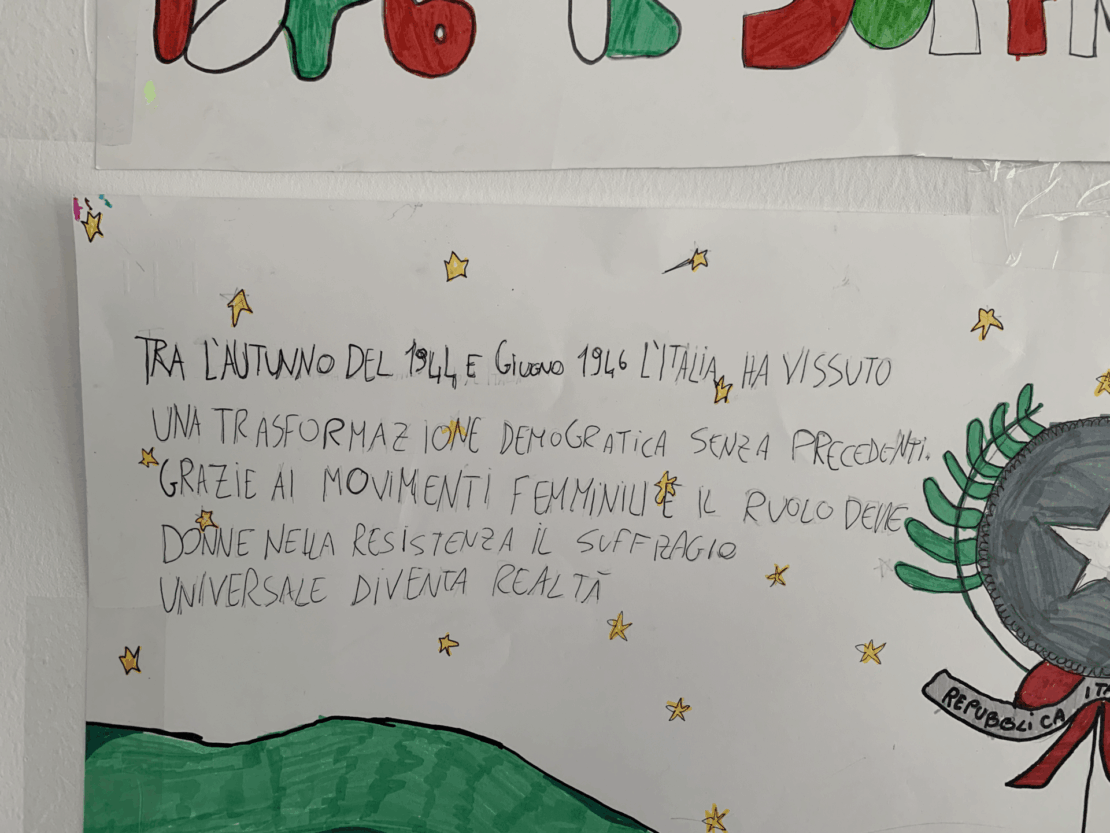 TRA L'AUTUNNO DEL 1944 E GIUGNO 1946 L'ITALIA HA VISSUTO
UNA TRASFORMAZIONE DEMOGRATICA SENZA PRECEDENTI.
GRAZIE AI MOVIMENTI FEMMINILI E IL RUOLO DELLE
DONNE NELLA RESISTENZA IL SUFFRAGIO
UNIVERSALE DIVENTA REALTÀ
REPUBBLICA